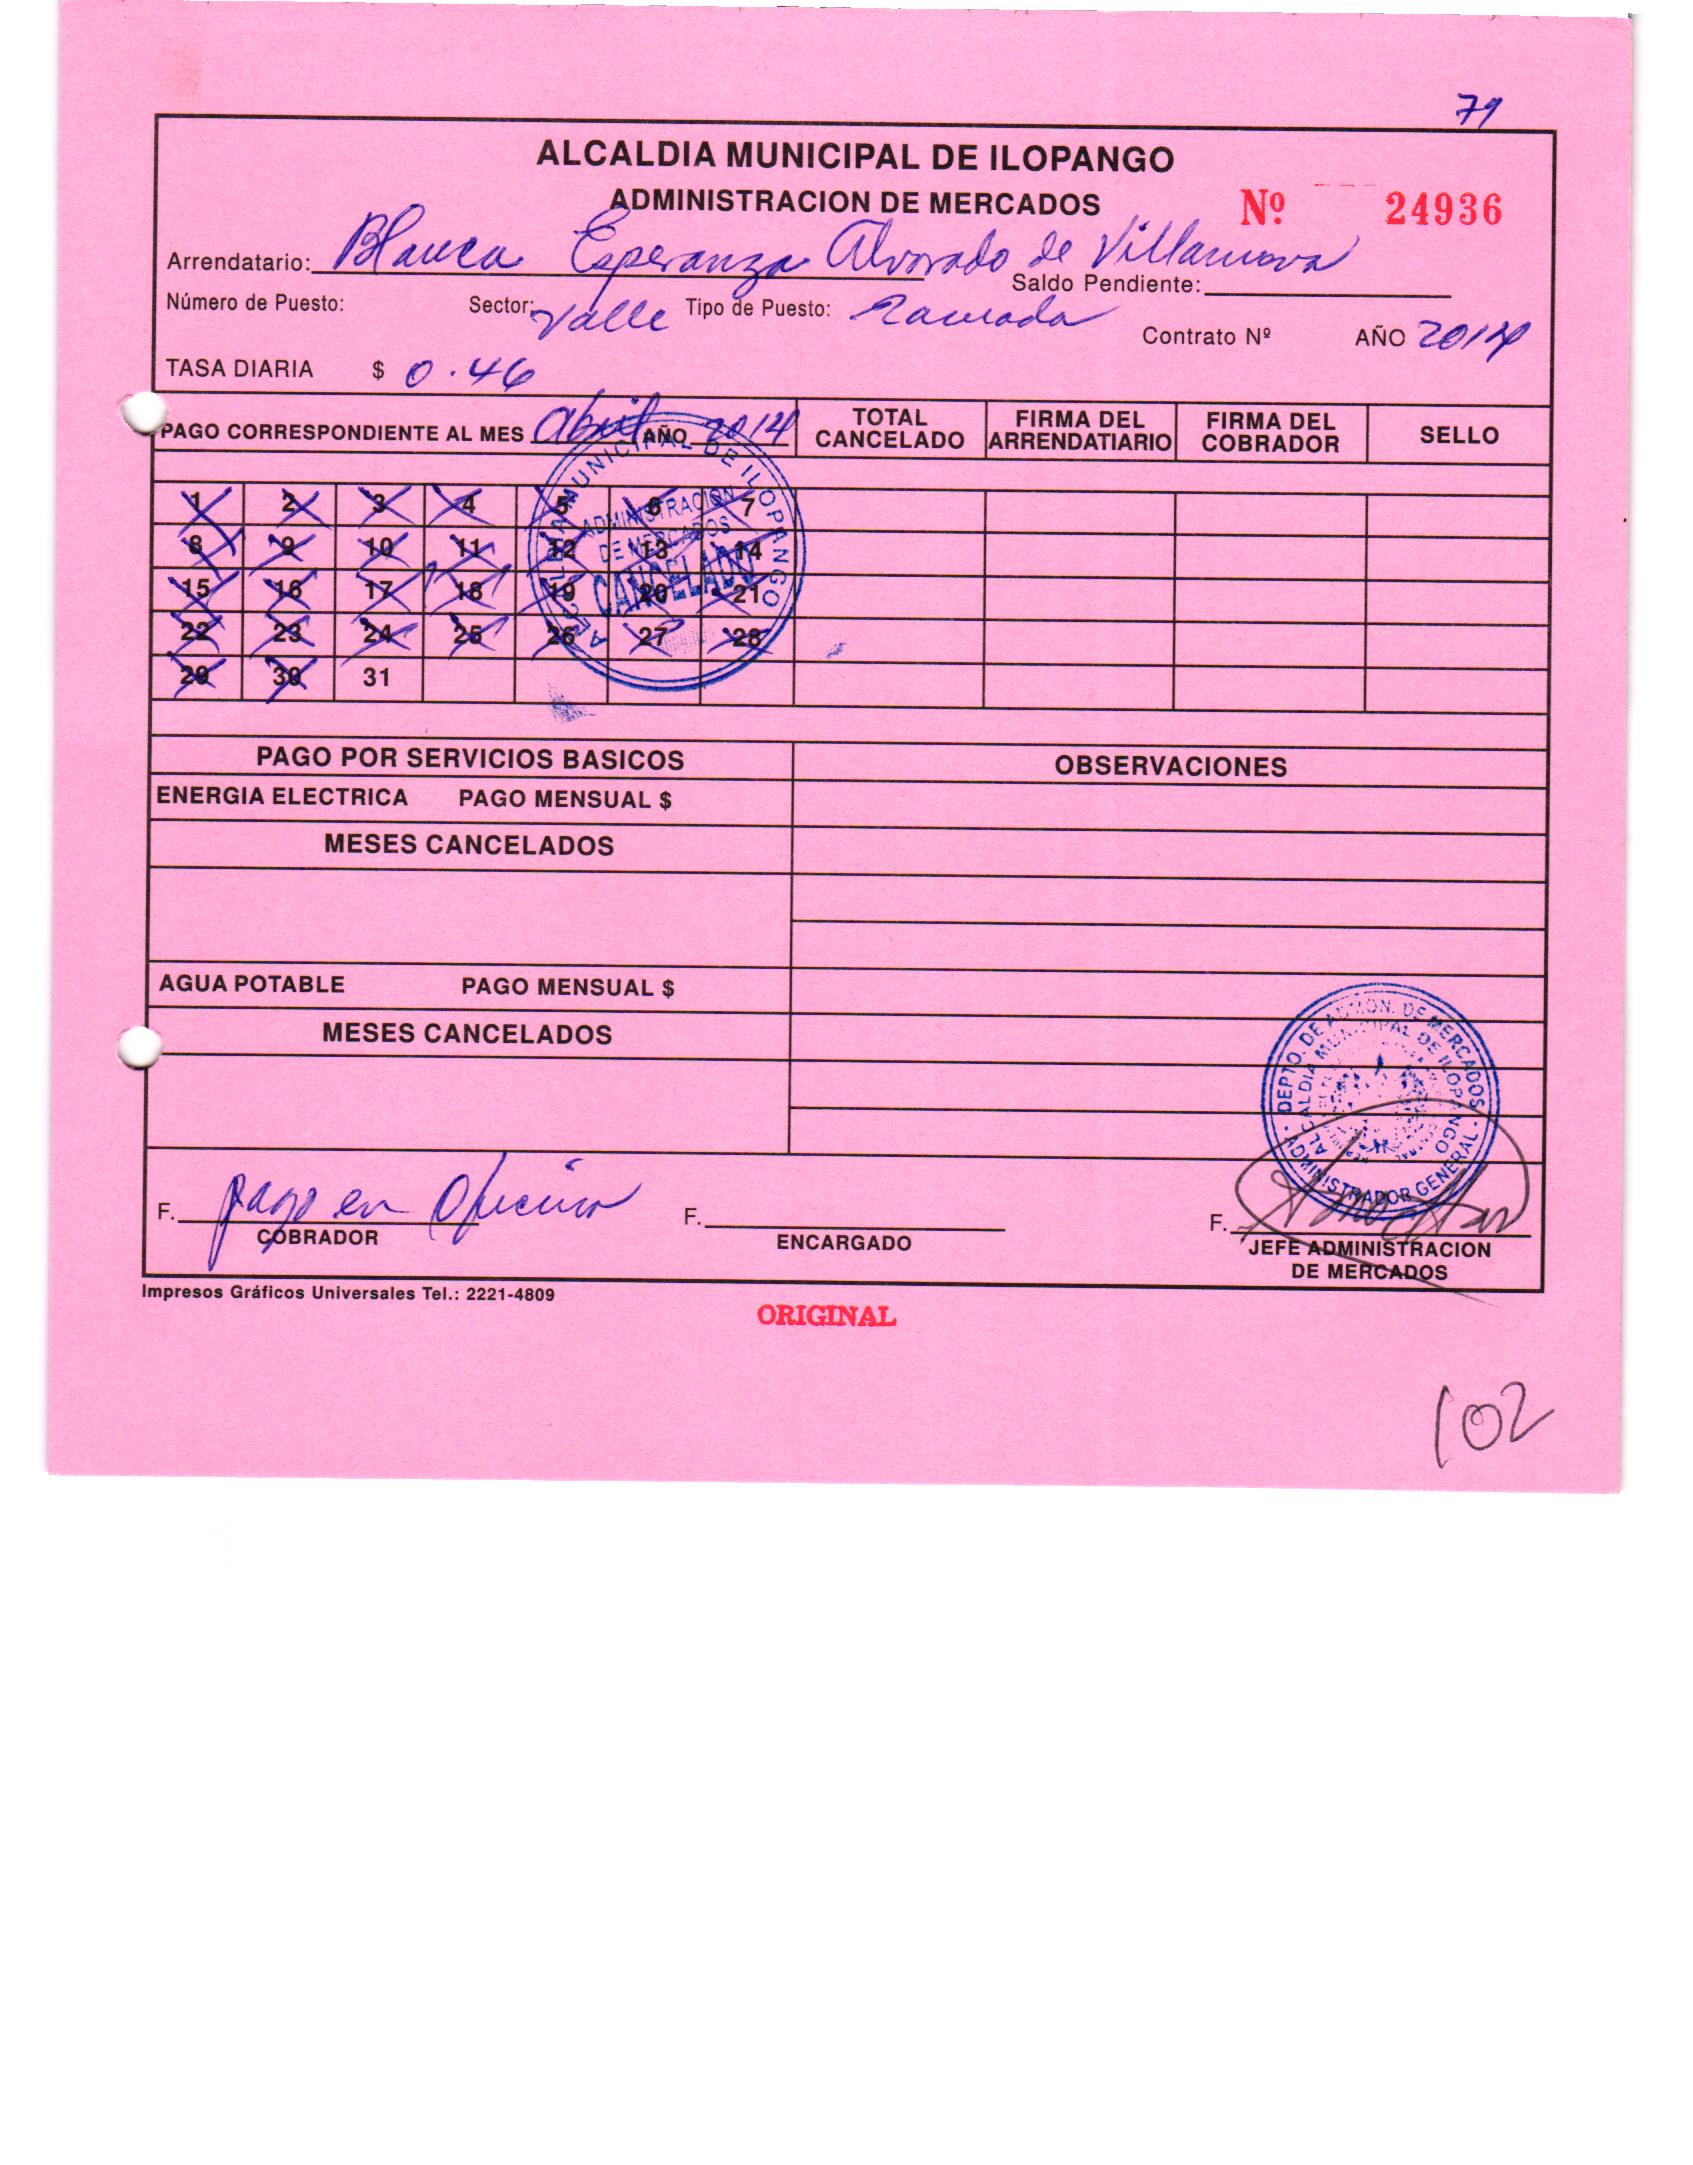 71
ALCALDIA MUNICIPAL DE ILOPANGO
ADMINISTRACION DE MERCADOS
Nº 24936
Arrendatario: Blanca Esperanza Alvarado de Villanueva
Saldo Pendiente:
Número de Puesto: Sector: Valle Tipo de Puesto: Ramada
Contrato Nº AÑO 2014
TASA DIARIA $ 0.46
PAGO CORRESPONDIENTE AL MES abril AÑO 2014
TOTAL CANCELADO
FIRMA DEL ARRENDATIARIO
FIRMA DEL COBRADOR
SELLO
1 2 3 4 5 6 7
8 9 10 11 12 13 14
15 16 17 18 19 20 21
22 23 24 25 26 27 28
29 30 31
ALCALDIA MUNICIPAL DE ILOPANGO
ADMINISTRACION
DE MERCADOS
CANCELADO
PAGO POR SERVICIOS BASICOS
OBSERVACIONES
ENERGIA ELECTRICA PAGO MENSUAL $
MESES CANCELADOS
AGUA POTABLE PAGO MENSUAL $
MESES CANCELADOS
DEPTO. DE ADMON. DE MERCADOS
ALCALDIA MUNICIPAL DE ILOPANGO
ADMINISTRADOR GENERAL
F. pago en Oficina
COBRADOR
F.
ENCARGADO
F.
JEFE ADMINISTRACION
DE MERCADOS
Impresos Gráficos Universales Tel.: 2221-4809
ORIGINAL
102